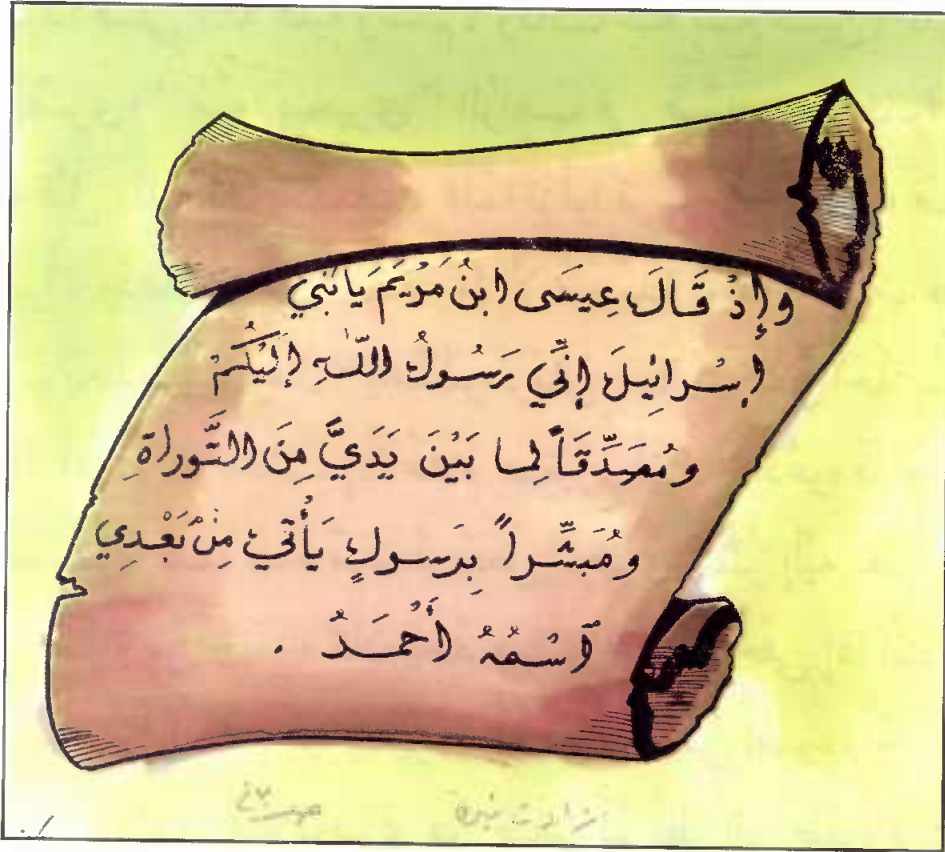 وإِذْ قَالَ عِيسَى ابنُ مَرْيَمَ يَا بَنِي
إِسْرائِيلَ إِنِّي رَسُولُ اللّهِ إِلَيْكُمْ
ومُصَدِّقَاً لِما بَيْنَ يَدَيَّ مِنَ التَّوراةِ
ومُبَشِّراً بِرَسولٍ يَأْتي مِنْ بَعْدِي
آسْمُهُ أَحْمَدُ .